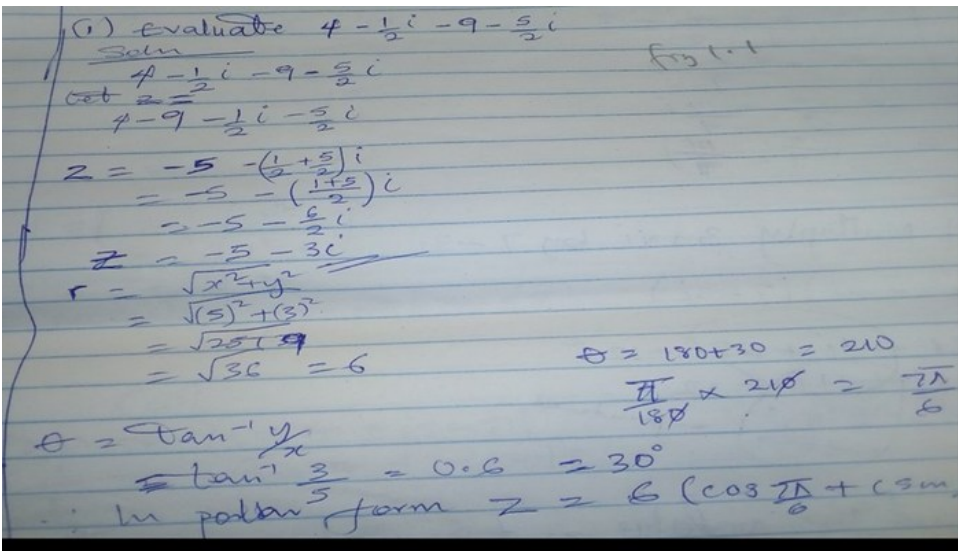 (i) Evaluate 4 - 1/2 i - 9 - 5/2 i
Soln
4 - 1/2 i - 9 - 5/2 i
Let z =
4 - 9 - 1/2 i - 5/2 i
z = -5 - (1/2 + 5/2) i
= -5 - (1+5/2) i
= -5 - 6/2 i
z = -5 - 3i
r = √x² + y²
= √(5)² + (3)²
= √25 + 9
= √36 = 6
θ = 180 + 30 = 210
π/180 × 210 = 7π/6
θ = tan⁻¹ y/x
= tan⁻¹ 3/5 = 0.6 = 30°
∴ In form z = 6 (cos 7π/6 + i sin